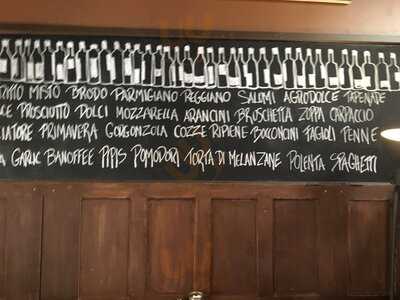 MISTO BRODO PARMIGIANO REGGIANO SALUMI AGRODOLCE TAPENADE
PROSCIUTTO DOLCI MOZZARELLA ARANCINI BRUSCHETTA ZUPPA CARPACCIO
IATORE PRIMAVERA GORGONZOLA COZZE RIPIENE BOCONCINI FAGIOLI PENNE
A GARLIC BANOFFEE PIPIS POMODORI TORTA DI MELANZANE POLENTA SPAGHETTI